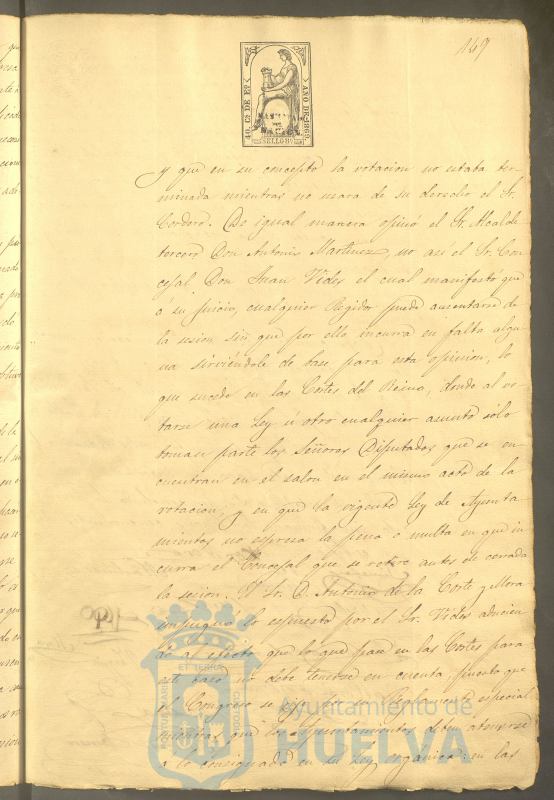 149
40. Cs. DE Eº.
AÑO DE 1869.
SELLO 8º.
y que en su concepto la votacion no estaba ter-
minada mientras no usara de su derecho el Sr.
Cordero. De igual manera opinó el Sr. Alcalde
tercero Don Antonio Martinez, no así el Sr. Con-
cejal Don Juan Vides el cual manifestó que
á su juicio, cualquier Regidor puede ausentarse de
la sesion, sin que por ello incurra en falta algu-
na sirviéndole de base para esta opinion, lo
que sucede en las Córtes del Reino, donde al vo-
tarse una Ley ú otro cualquier asunto sólo
toman parte los Señores Diputados que se en-
cuentran en el salon en el mismo acto de la
votacion, y en que la vigente Ley de Ayunta-
mientos no espresa la pena o multa en que in-
curra el Concejal que se retire antes de cerrada
la sesion. El Sr. D. Antonio de la Corte y Mora
impugnó lo espuesto por el Sr. Vides aducien-
do al efecto que lo que pasa en las Córtes para
este caso no debe tenerse en cuenta, puesto que
el Congreso se rige por un Reglamento especial
mientras que los Ayuntamientos deben atenerse
a lo consignado en su Ley orgánica: en las
PORTUS MARIS
ET TERRAE
CUSTODIA
Ayuntamiento de
HUELVA